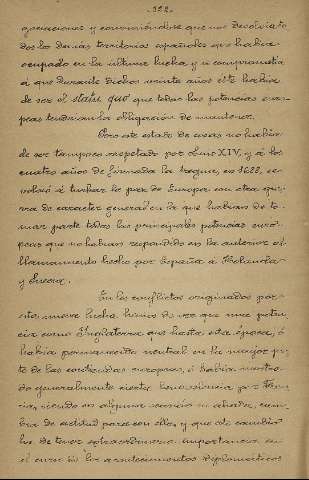 -132-
operaciones y conviniéndose que nos devolviera to
dos los demás territorios españoles que había
ocupado en la última lucha, y se comprometía
á que durante dichos veinte años éste habría
de ser el statu quo que todas las potencias euro
peas tendrían la obligación de mantener.
Pero este estado de cosas no había
de ser tampoco respetado por Luis XIV, y á los
cuatro años de firmada la tregua, en 1688, se
volvió á turbar la paz de Europa con otra gue
rra de caracter general en la que habían de to
mar parte todas las principales potencias euro
peas que no habían respondido en la anterior al
llamamiento hecho por España á Holanda
y Suecia.
En los conflictos originados por
esta nueva lucha hemos de ver que una poten
cia como Inglaterra que hasta esta época, ó
había permanecido neutral en la mayor par
te de las contiendas europeas, ó había mostra
do generalmente cierta benevolencia por Fran
cia, siendo en alguna ocasión su aliada, cam
bia de actitud para con ella, y que este cambio
ha de tener extraordinaria importancia en
el curso de los acontecimientos diplomáticos